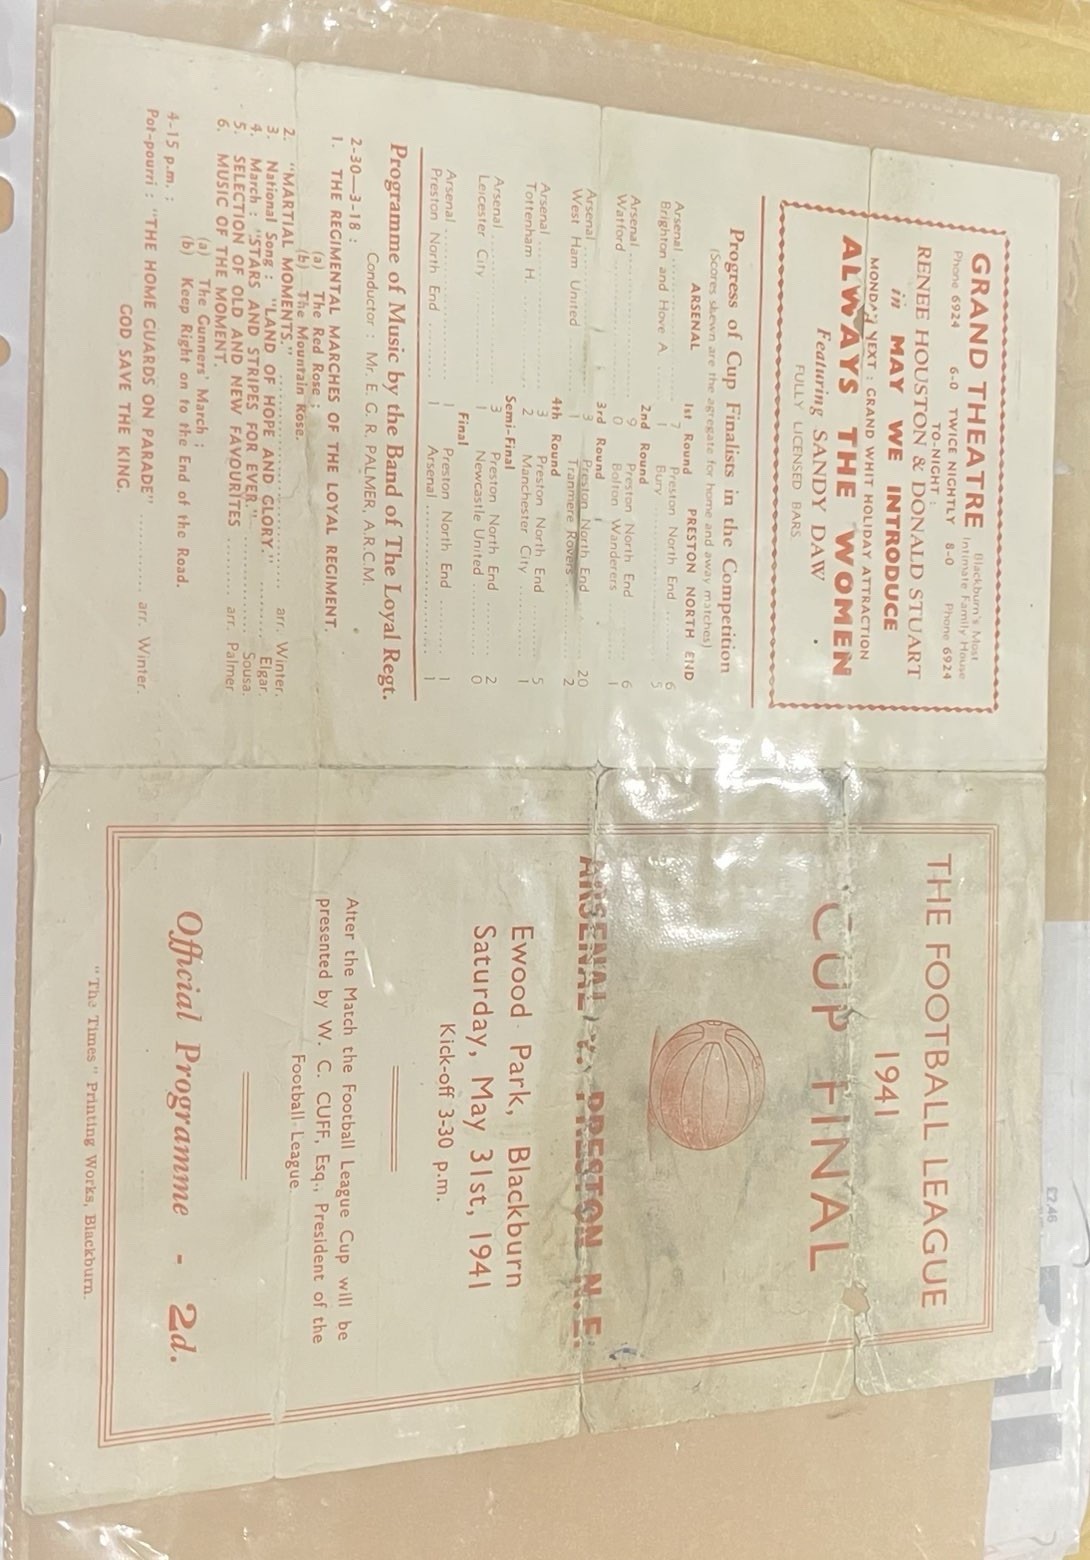 GRAND THEATRE Blackburn's Most
Intimate Family House
Phone 6924 6-0 TWICE NIGHTLY 8-0 Phone 6924
TO-NIGHT:
RENEE HOUSTON & DONALD STUART
in MAY WE INTRODUCE
MONDAY NEXT : GRAND WHIT HOLIDAY ATTRACTION
ALWAYS THE WOMEN
Featuring SANDY DAW
FULLY LICENSED BARS
Progress of Cup Finalists in the Competition
(Scores shewn are the agregate for home and away matches)
ARSENAL 1st Round PRESTON NORTH END
Arsenal .......... 7 Preston North End ...... 6
Brighton and Hove A. ...... 1 Bury .......... 5
2nd Round
Arsenal .......... 9 Preston North End ...... 6
Watford .......... 0 Bolton Wanderers ...... 1
3rd Round
Arsenal .......... 3 Preston North End ...... 20
West Ham United ...... 1 Tranmere Rovers ...... 2
4th Round
Arsenal .......... 3 Preston North End ...... 5
Tottenham H. .......... 2 Manchester City ...... 1
Semi-Final
Arsenal .......... 3 Preston North End ...... 2
Leicester City .......... 1 Newcastle United ...... 0
Final
Arsenal .......... 1 Preston North End ...... 1
Preston North End ...... 1 Arsenal .......... 1
Programme of Music by the Band of The Loyal Regt.
Conductor : Mr. E. C. R. PALMER, A.R.C.M.
2-30—3-18 :
1. THE REGIMENTAL MARCHES OF THE LOYAL REGIMENT.
(a) The Red Rose ;
(b) The Mountain Rose.
2. "MARTIAL MOMENTS." .......... arr. Winter.
3. National Song : "LAND OF HOPE AND GLORY." .......... Elgar.
4. March : "STARS AND STRIPES FOR EVER." .......... Sousa.
5. SELECTION OF OLD AND NEW FAVOURITES .......... arr. Palmer
6. MUSIC OF THE MOMENT.
(a) The Gunners' March ;
(b) Keep Right on to the End of the Road.
4-15 p.m. :
Pot-pourri : "THE HOME GUARDS ON PARADE" .......... arr. Winter.
GOD SAVE THE KING.
THE FOOTBALL LEAGUE
1941
CUP FINAL
ARSENAL v. PRESTON N.E.
Ewood Park, Blackburn
Saturday, May 31st, 1941
Kick-off 3-30 p.m.
After the Match the Football League Cup will be
presented by W. C. CUFF, Esq., President of the
Football League
Official Programme - 2d.
"The Times" Printing Works, Blackburn.
£2.46